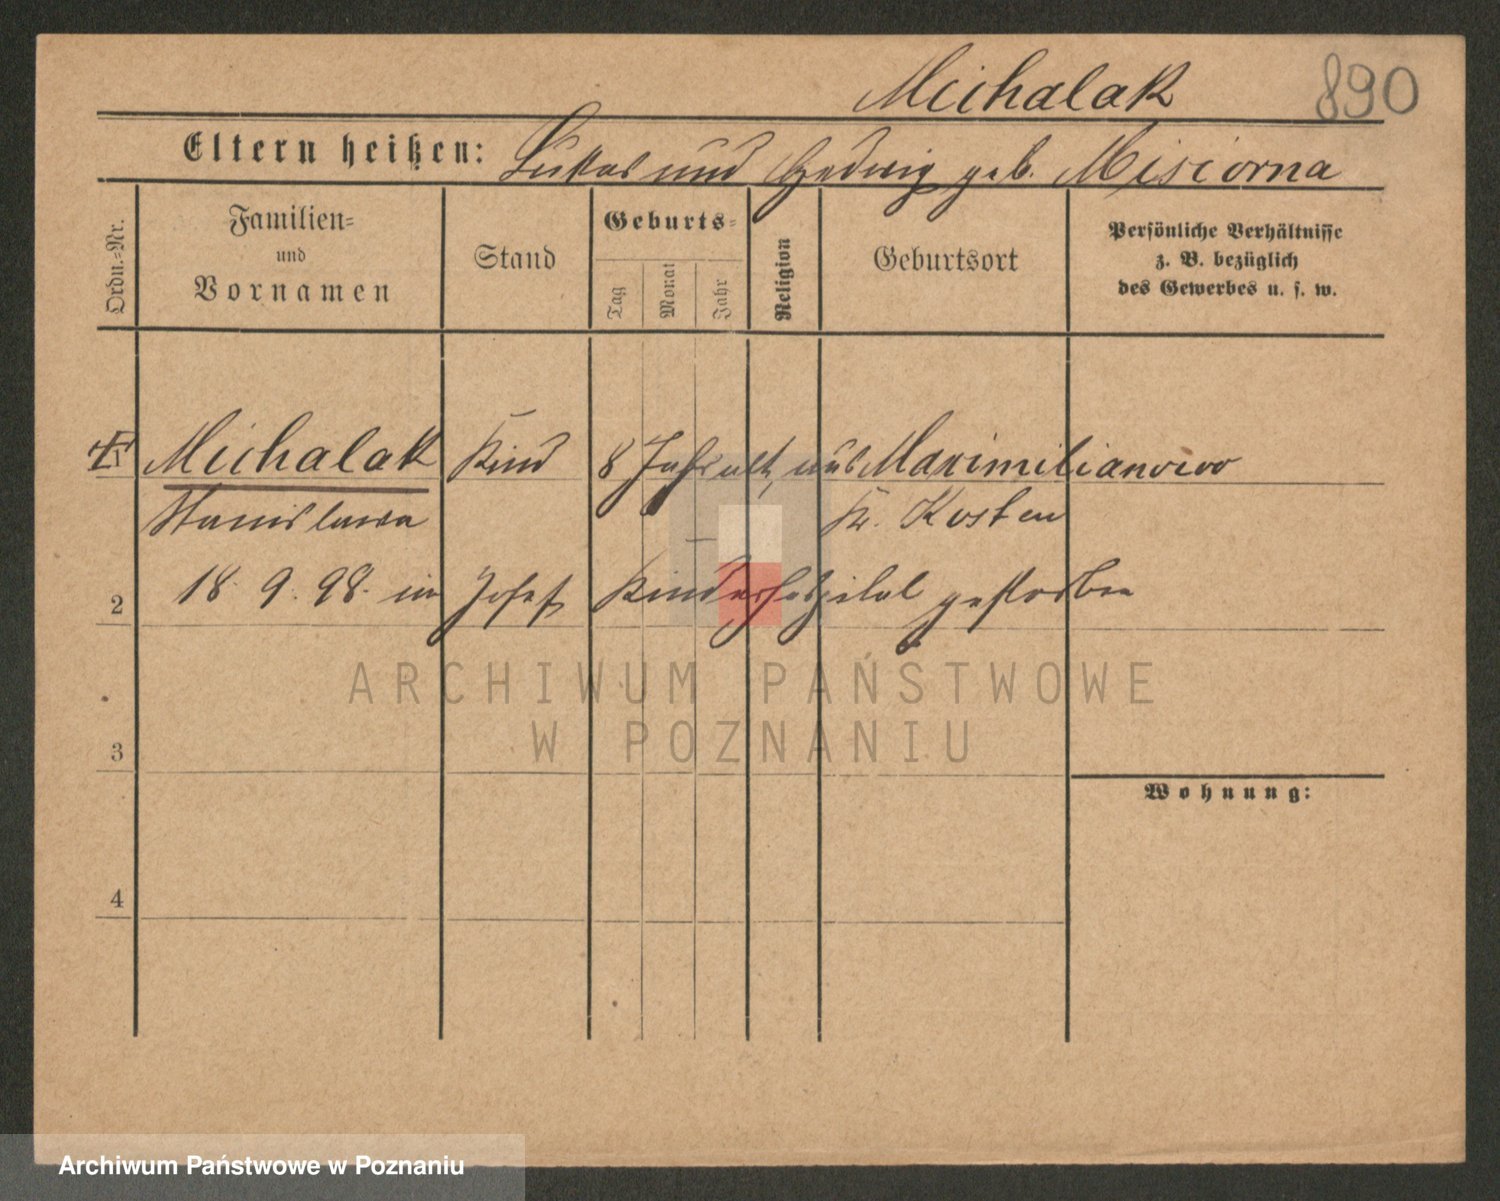 Michalak 890
Eltern heißen: Lukas und Hedwig geb. Misiorna
Ordn.=Nr.
Familien=
und
Vornamen
Stand
Geburts=
Tag
Monat
Jahr
Religion
Geburtsort
Persönliche Verhältnisse
z. B. bezüglich
des Gewerbes u. s. w.
Michalak Kind 8 Jahr alt, aus Maximilianowo
Stanislawa Kr. Kosten
2 18. 9. 98. im Josef Kinderhospital gestorben
ARCHIWUM PAŃSTWOWE
W POZNANIU
3
Wohnung:
4
Archiwum Państwowe w Poznaniu